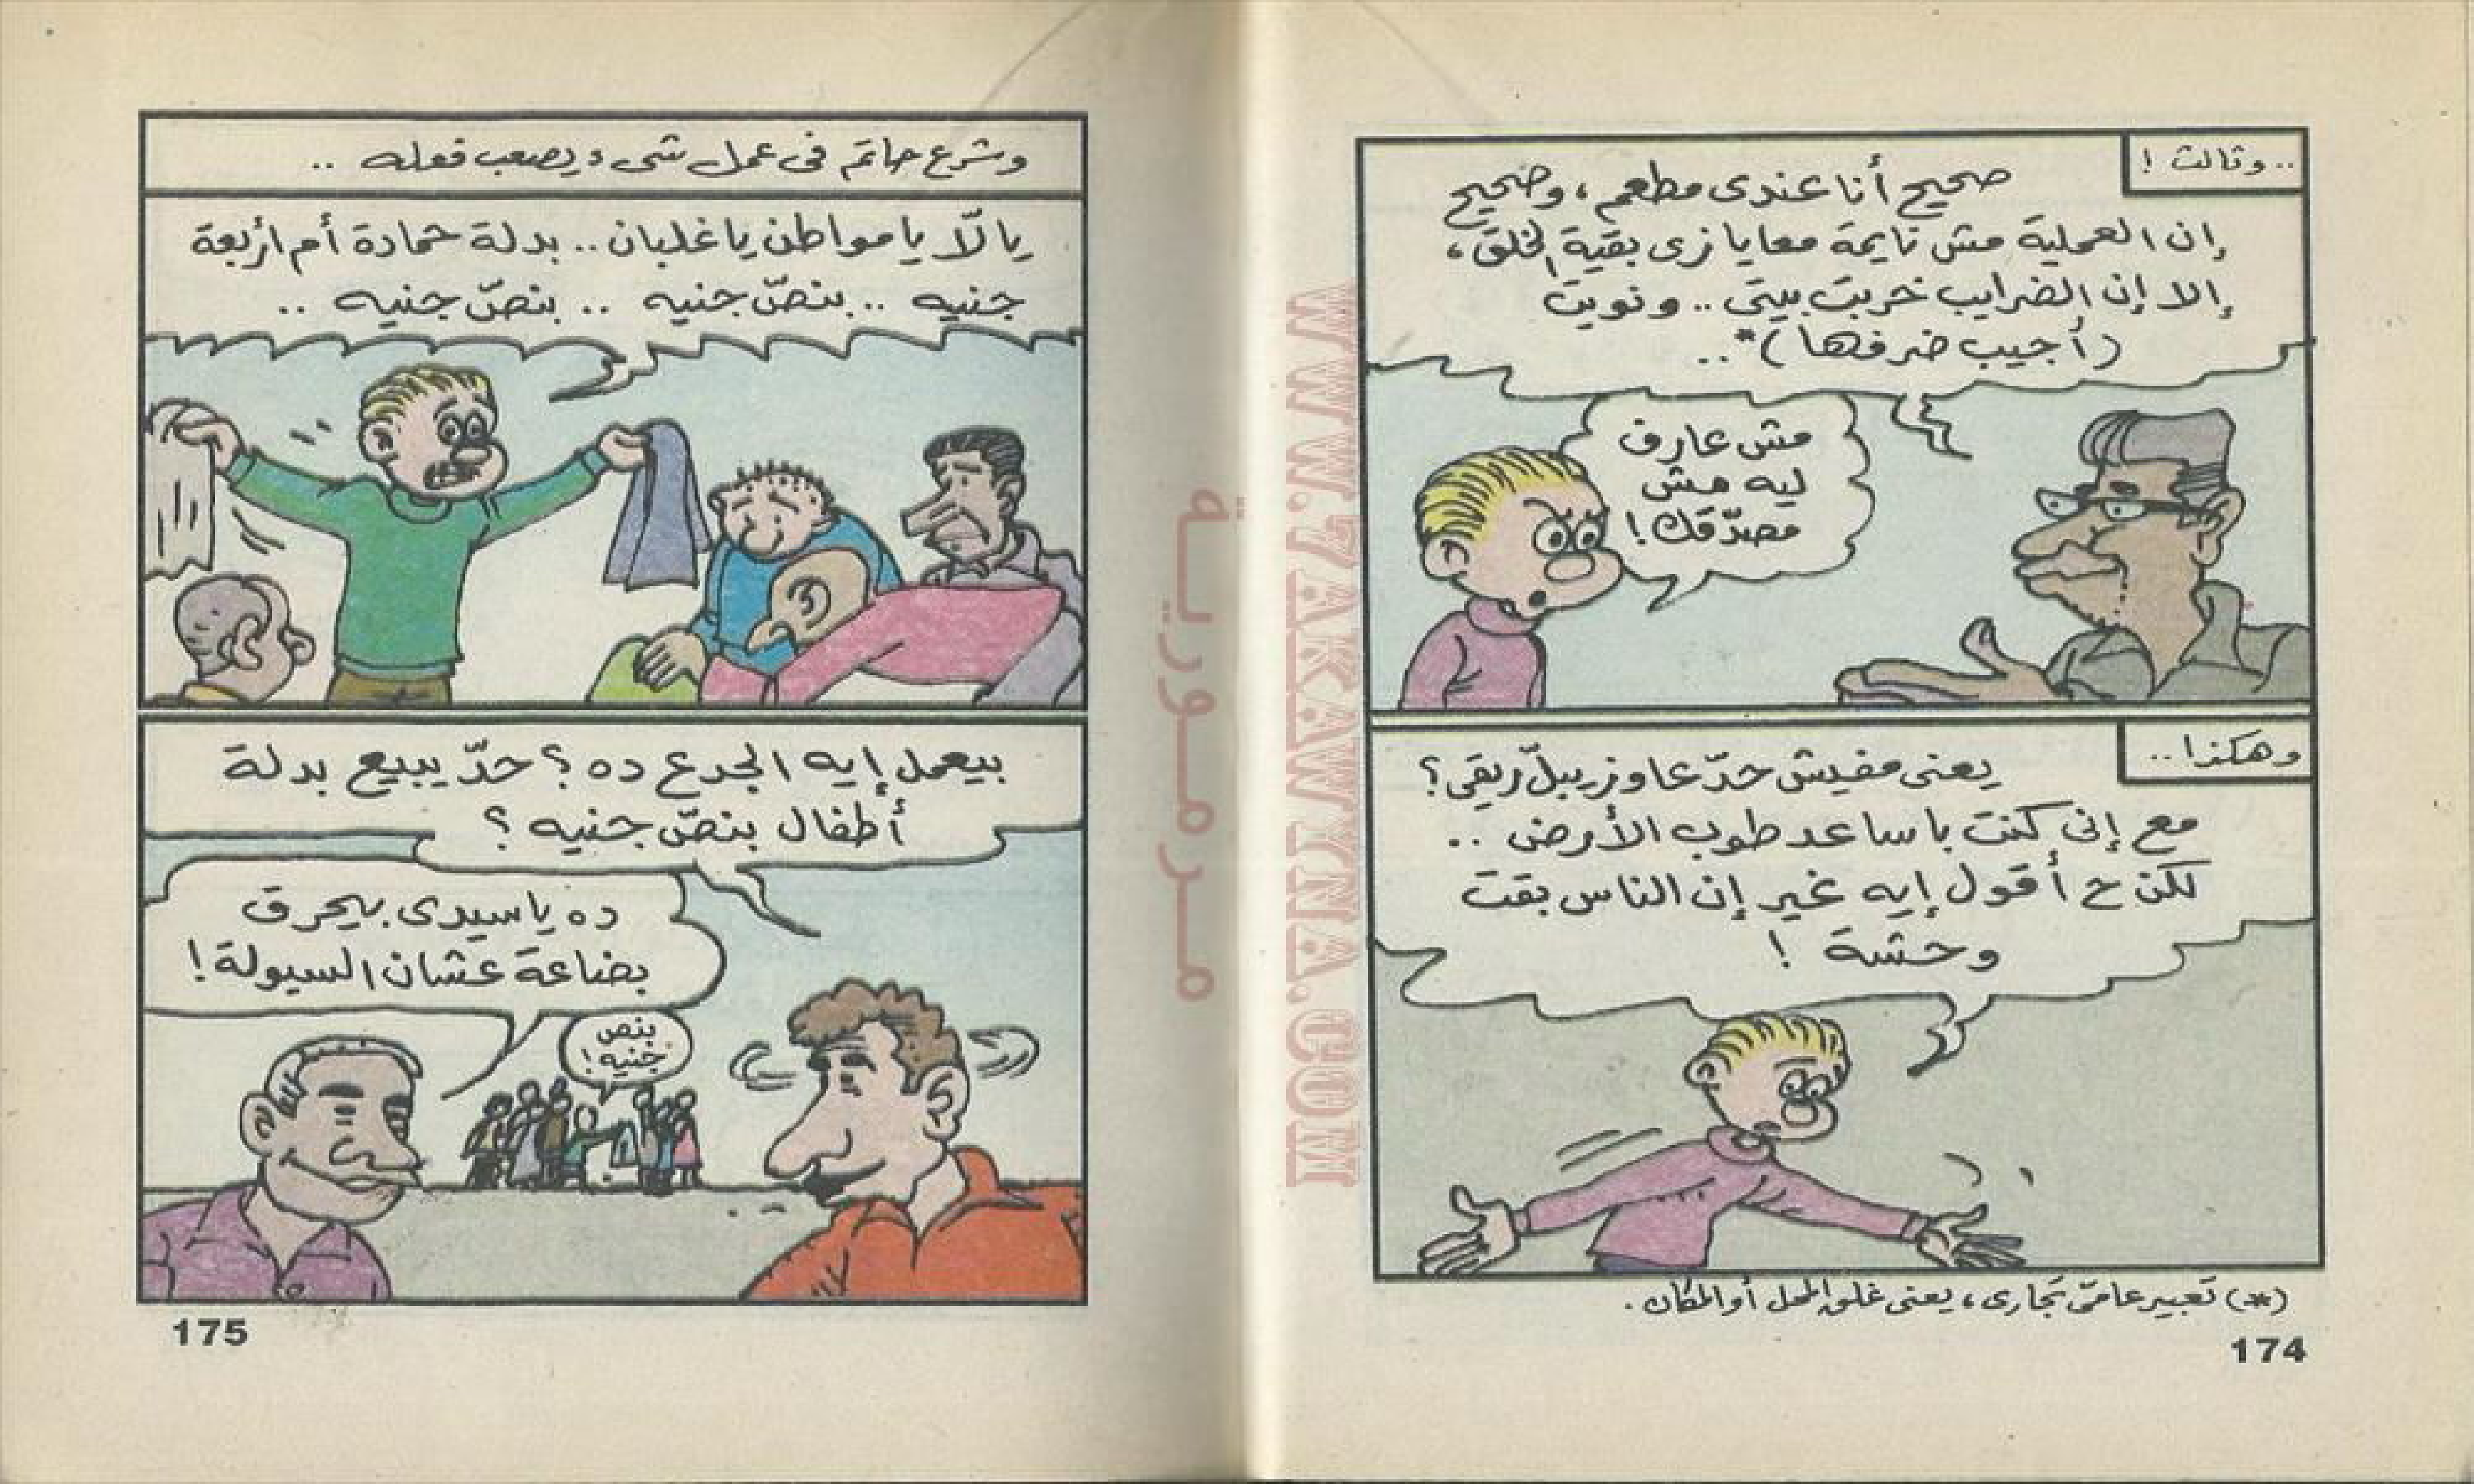 .. وثالث !
صحيح أنا عندى مطعم، وصحيح
إن العملية مش نايمة معايا زى بقية الخلق،
إلا إن الضرايب خربت بيتى .. ونويت
(أجيب ضرفها)* ..
مش عارف
ليه مش
مصدّقك !
وهكذا ..
يعنى مفيش حدّ عاوز يبلّ ريقى ؟
مع إنى كنت باساعد طوب الأرض ..
لكن ح أقول إيه غير إن الناس بقت
وحشة !
(*) تعبير عامىّ تجارى، يعنى غلق المحل أو المكان .
174
وشرع حاتم فى عمل شىء يصعب فعله ..
يالّا يا مواطن يا غلبان .. بدلة حمادة أم أربعة
جنيه .. بنصّ جنيه .. بنصّ جنيه ..
بيعمل إيه الجدع ده ؟ حدّ يبيع بدلة
أطفال بنصّ جنيه ؟
ده يا سيدى بيحرق
بضاعة عشان السيولة !
بنص
جنيه !
175
مرمورية
WWW.7AKAWYNA.COM